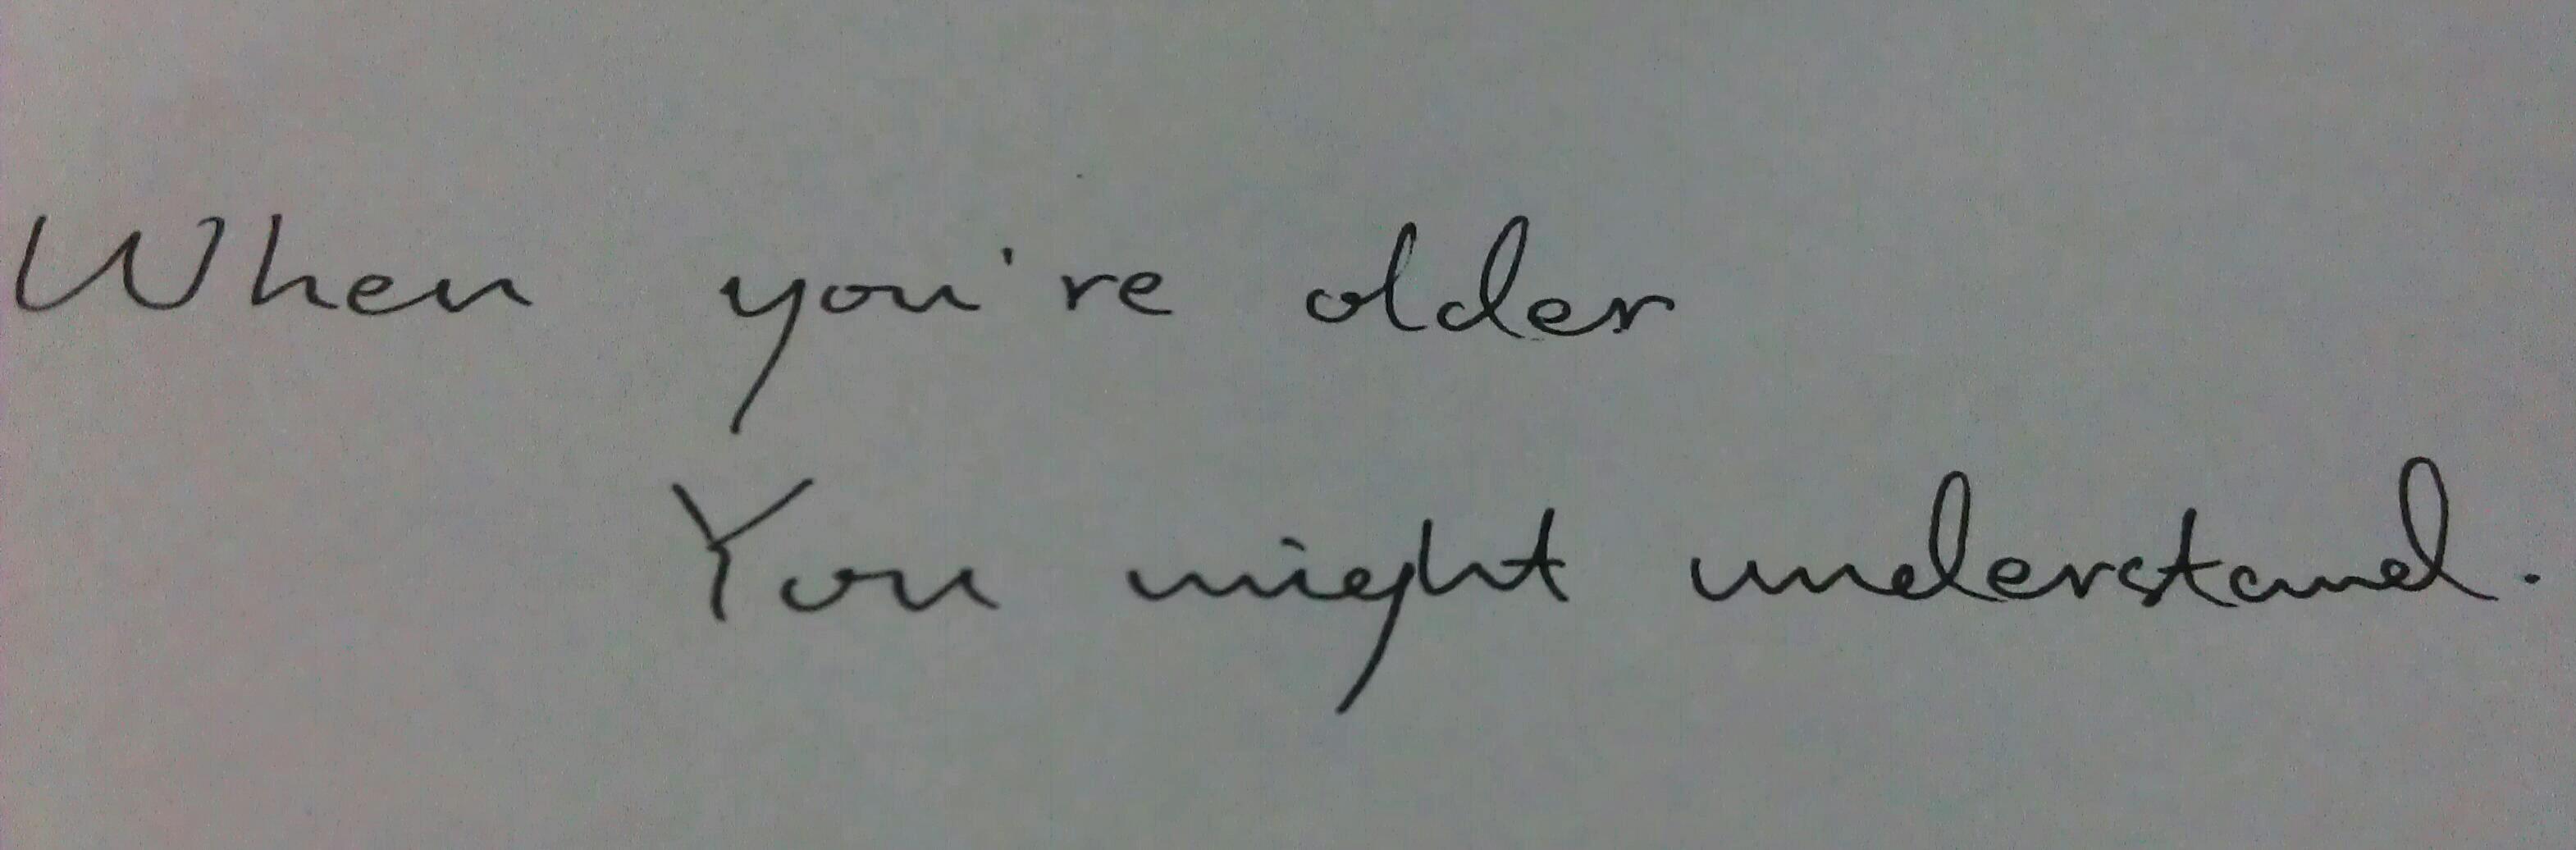 When you're older
You might understand.